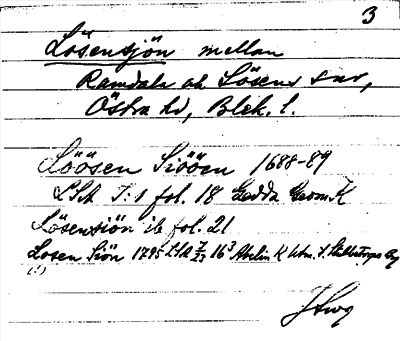 3
Lösensjön mellan
Ramdala och Lösens snr,
Östra hd, Blek. l.
Söösen Siöön 1688-89
LSA I:1 fol. 18 Gedda Geom. K
Lösensiön ib fol. 21
Losen Siön 1795 LSA 16³ Abelin K